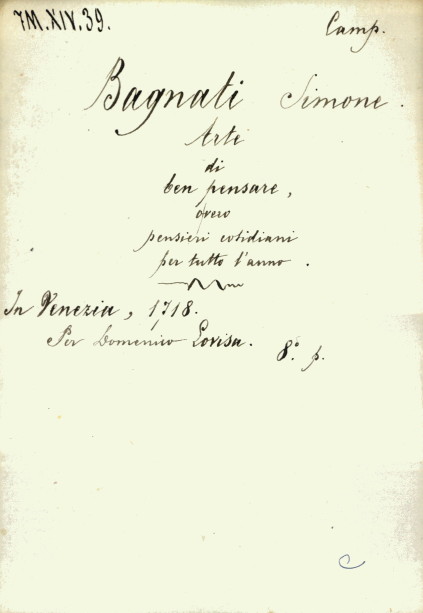 7M.XIV.39.
Camp.
Bagnati Simone.
Arte
di
ben pensare,
overo
pensieri cotidiani
per tutto l'anno.
In Venezia, 1718.
Per Domenico Lovisa. 8.° p.
C